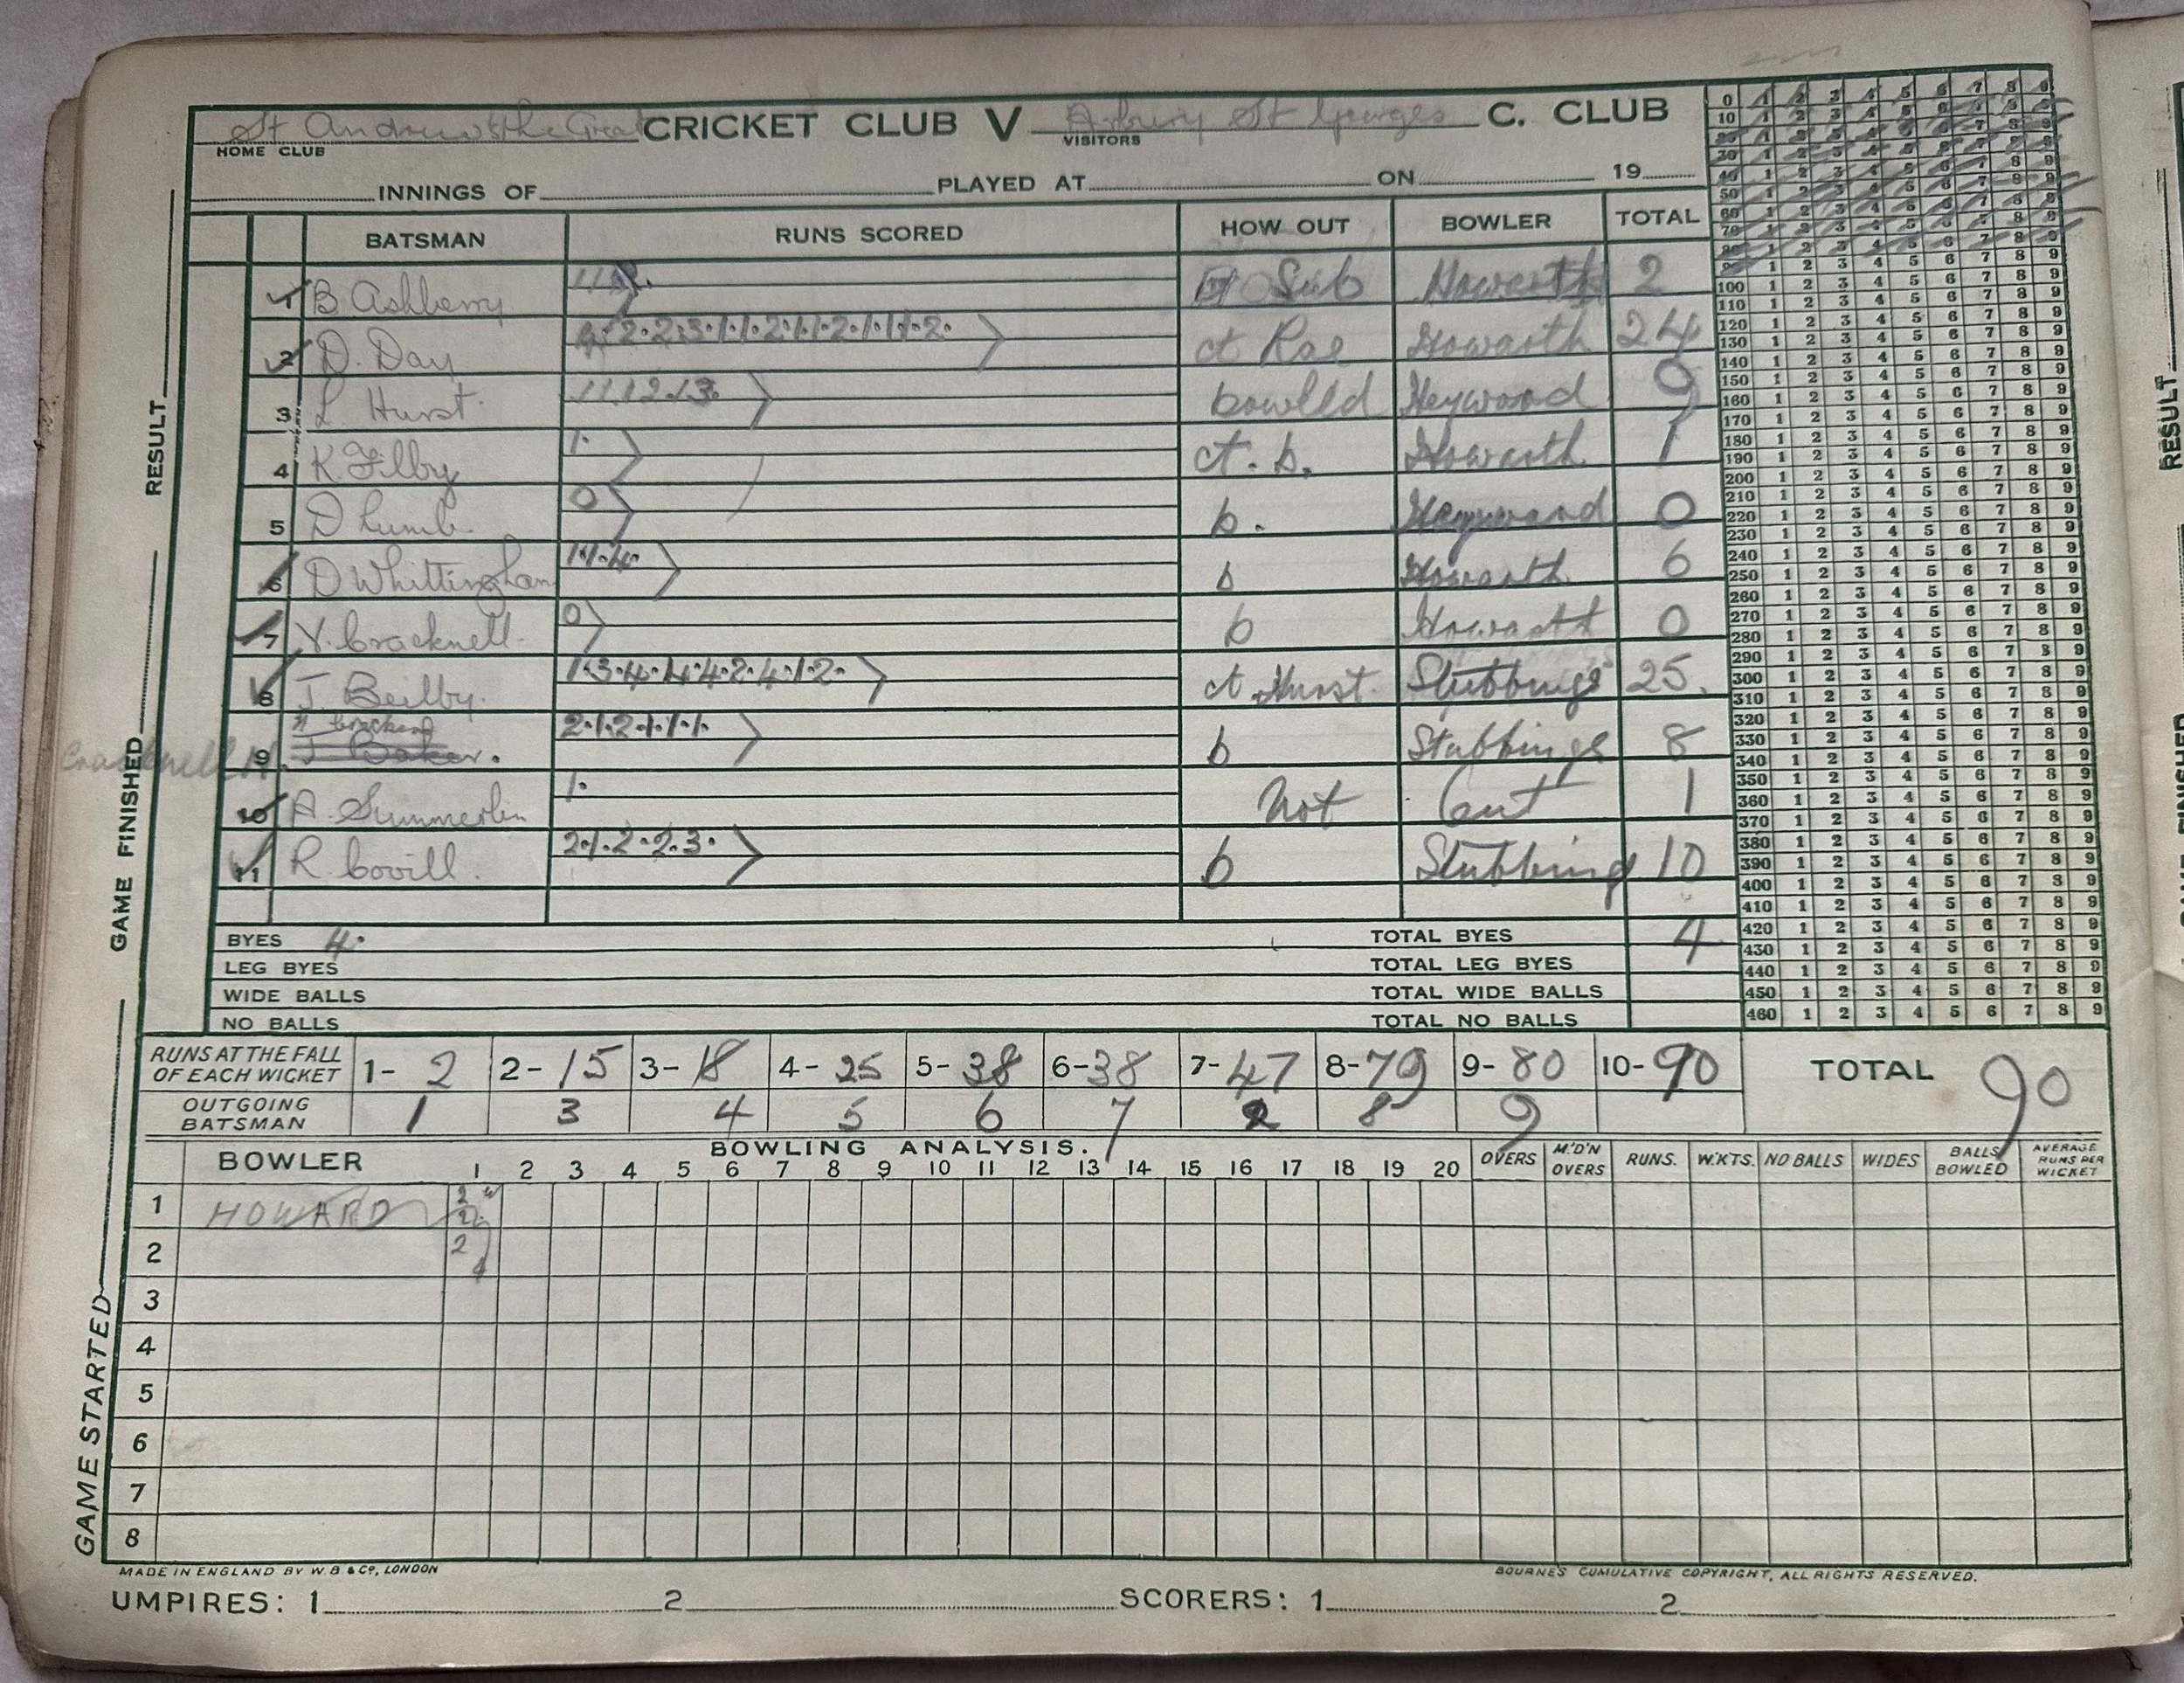 St Andrew's the Great CRICKET CLUB V Arbury St Georges C. CLUB
HOME CLUB VISITORS
INNINGS OF PLAYED AT ON 19
BATSMAN RUNS SCORED HOW OUT BOWLER TOTAL
1 B. Ashberry Sub Howarth 2
2 D. Day 2.2.3.1.1.2.1.1.2.1.1.1.2. ct Rae Howarth 24
3 L Hurst. 1.1.1.2.1.3. bowlled Heywood 9
4 K Filby 1. ct. b. Howarth 1
5 D Lumb. 0 b. Heywood 0
6 D Whittingham 1.1.4. b Howarth 6
7 V. Cracknell. 0 b Howarth 0
8 J. Beilby. 1.3.4.4.4.2.4.1.2. ct. Hurst. Stubbings 25.
Cracknell H. 9 J Baker. 2.1.2.1.1.1. b Stubbings 8
10 A. Summerlin 1. Not Out 1
11 R. Covill. 2.1.2.2.3. b Stubbing 10
BYES 4. TOTAL BYES 4
LEG BYES TOTAL LEG BYES
WIDE BALLS TOTAL WIDE BALLS
NO BALLS TOTAL NO BALLS
RUNS AT THE FALL OF EACH WICKET 1- 2 2- 15 3- 18 4- 25 5- 38 6- 38 7- 47 8- 79 9- 80 10- 90 TOTAL 90
OUTGOING BATSMAN 1 3 4 5 6 7 2 8 9
BOWLING ANALYSIS.
BOWLER 1 2 3 4 5 6 7 8 9 10 11 12 13 14 15 16 17 18 19 20 OVERS M'D'N OVERS RUNS. W'KTS. NO BALLS WIDES BALLS BOWLED AVERAGE RUNS PER WICKET
1 HOWARD
2
3
4
5
6
7
8
MADE IN ENGLAND BY W.B & Co, LONDON BOURNE'S CUMULATIVE COPYRIGHT, ALL RIGHTS RESERVED.
UMPIRES: 1 2 SCORERS: 1 2
GAME STARTED GAME FINISHED RESULT
0 1 2 3 4 5 6 7 8 9
10 1 2 3 4 5 6 7 8 9
20 1 2 3 4 5 6 7 8 9
30 1 2 3 4 5 6 7 8 9
40 1 2 3 4 5 6 7 8 9
50 1 2 3 4 5 6 7 8 9
60 1 2 3 4 5 6 7 8 9
70 1 2 3 4 5 6 7 8 9
80 1 2 3 4 5 6 7 8 9
90 1 2 3 4 5 6 7 8 9
100 1 2 3 4 5 6 7 8 9
110 1 2 3 4 5 6 7 8 9
120 1 2 3 4 5 6 7 8 9
130 1 2 3 4 5 6 7 8 9
140 1 2 3 4 5 6 7 8 9
150 1 2 3 4 5 6 7 8 9
160 1 2 3 4 5 6 7 8 9
170 1 2 3 4 5 6 7 8 9
180 1 2 3 4 5 6 7 8 9
190 1 2 3 4 5 6 7 8 9
200 1 2 3 4 5 6 7 8 9
210 1 2 3 4 5 6 7 8 9
220 1 2 3 4 5 6 7 8 9
230 1 2 3 4 5 6 7 8 9
240 1 2 3 4 5 6 7 8 9
250 1 2 3 4 5 6 7 8 9
260 1 2 3 4 5 6 7 8 9
270 1 2 3 4 5 6 7 8 9
280 1 2 3 4 5 6 7 8 9
290 1 2 3 4 5 6 7 8 9
300 1 2 3 4 5 6 7 8 9
310 1 2 3 4 5 6 7 8 9
320 1 2 3 4 5 6 7 8 9
330 1 2 3 4 5 6 7 8 9
340 1 2 3 4 5 6 7 8 9
350 1 2 3 4 5 6 7 8 9
360 1 2 3 4 5 6 7 8 9
370 1 2 3 4 5 6 7 8 9
380 1 2 3 4 5 6 7 8 9
390 1 2 3 4 5 6 7 8 9
400 1 2 3 4 5 6 7 8 9
410 1 2 3 4 5 6 7 8 9
420 1 2 3 4 5 6 7 8 9
430 1 2 3 4 5 6 7 8 9
440 1 2 3 4 5 6 7 8 9
450 1 2 3 4 5 6 7 8 9
460 1 2 3 4 5 6 7 8 9
RESULT